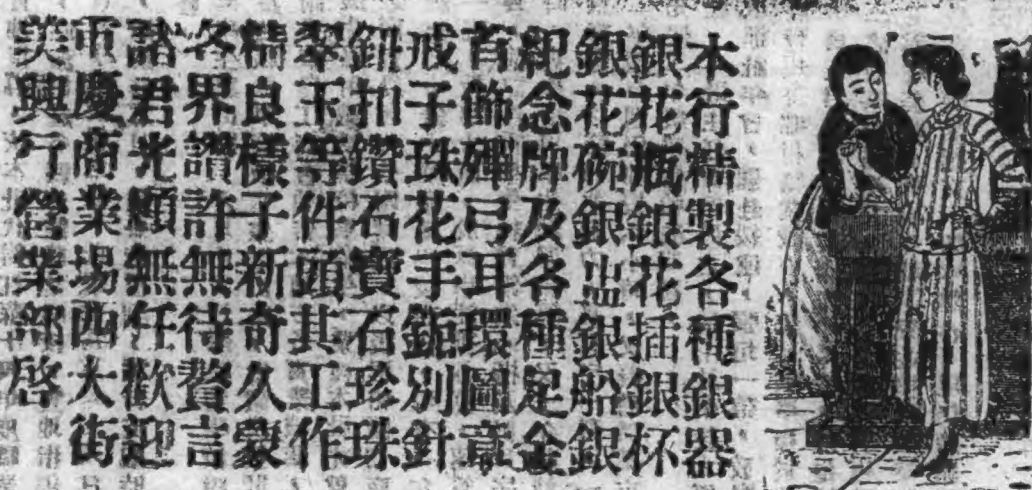 本行精製各種銀器
銀花瓶銀花插銀杯
銀花碗銀盅銀船銀
紀念牌及各種足金
首飾彈弓耳環圖章
戒子珠花手鈪別針
鈕扣鑽石寶石珍珠
翠玉等件頭其工作
精良樣子新奇久蒙
各界讚許無待贅言
諸君光顧無任歡迎
重慶商業場西大街
美興行營業部啓